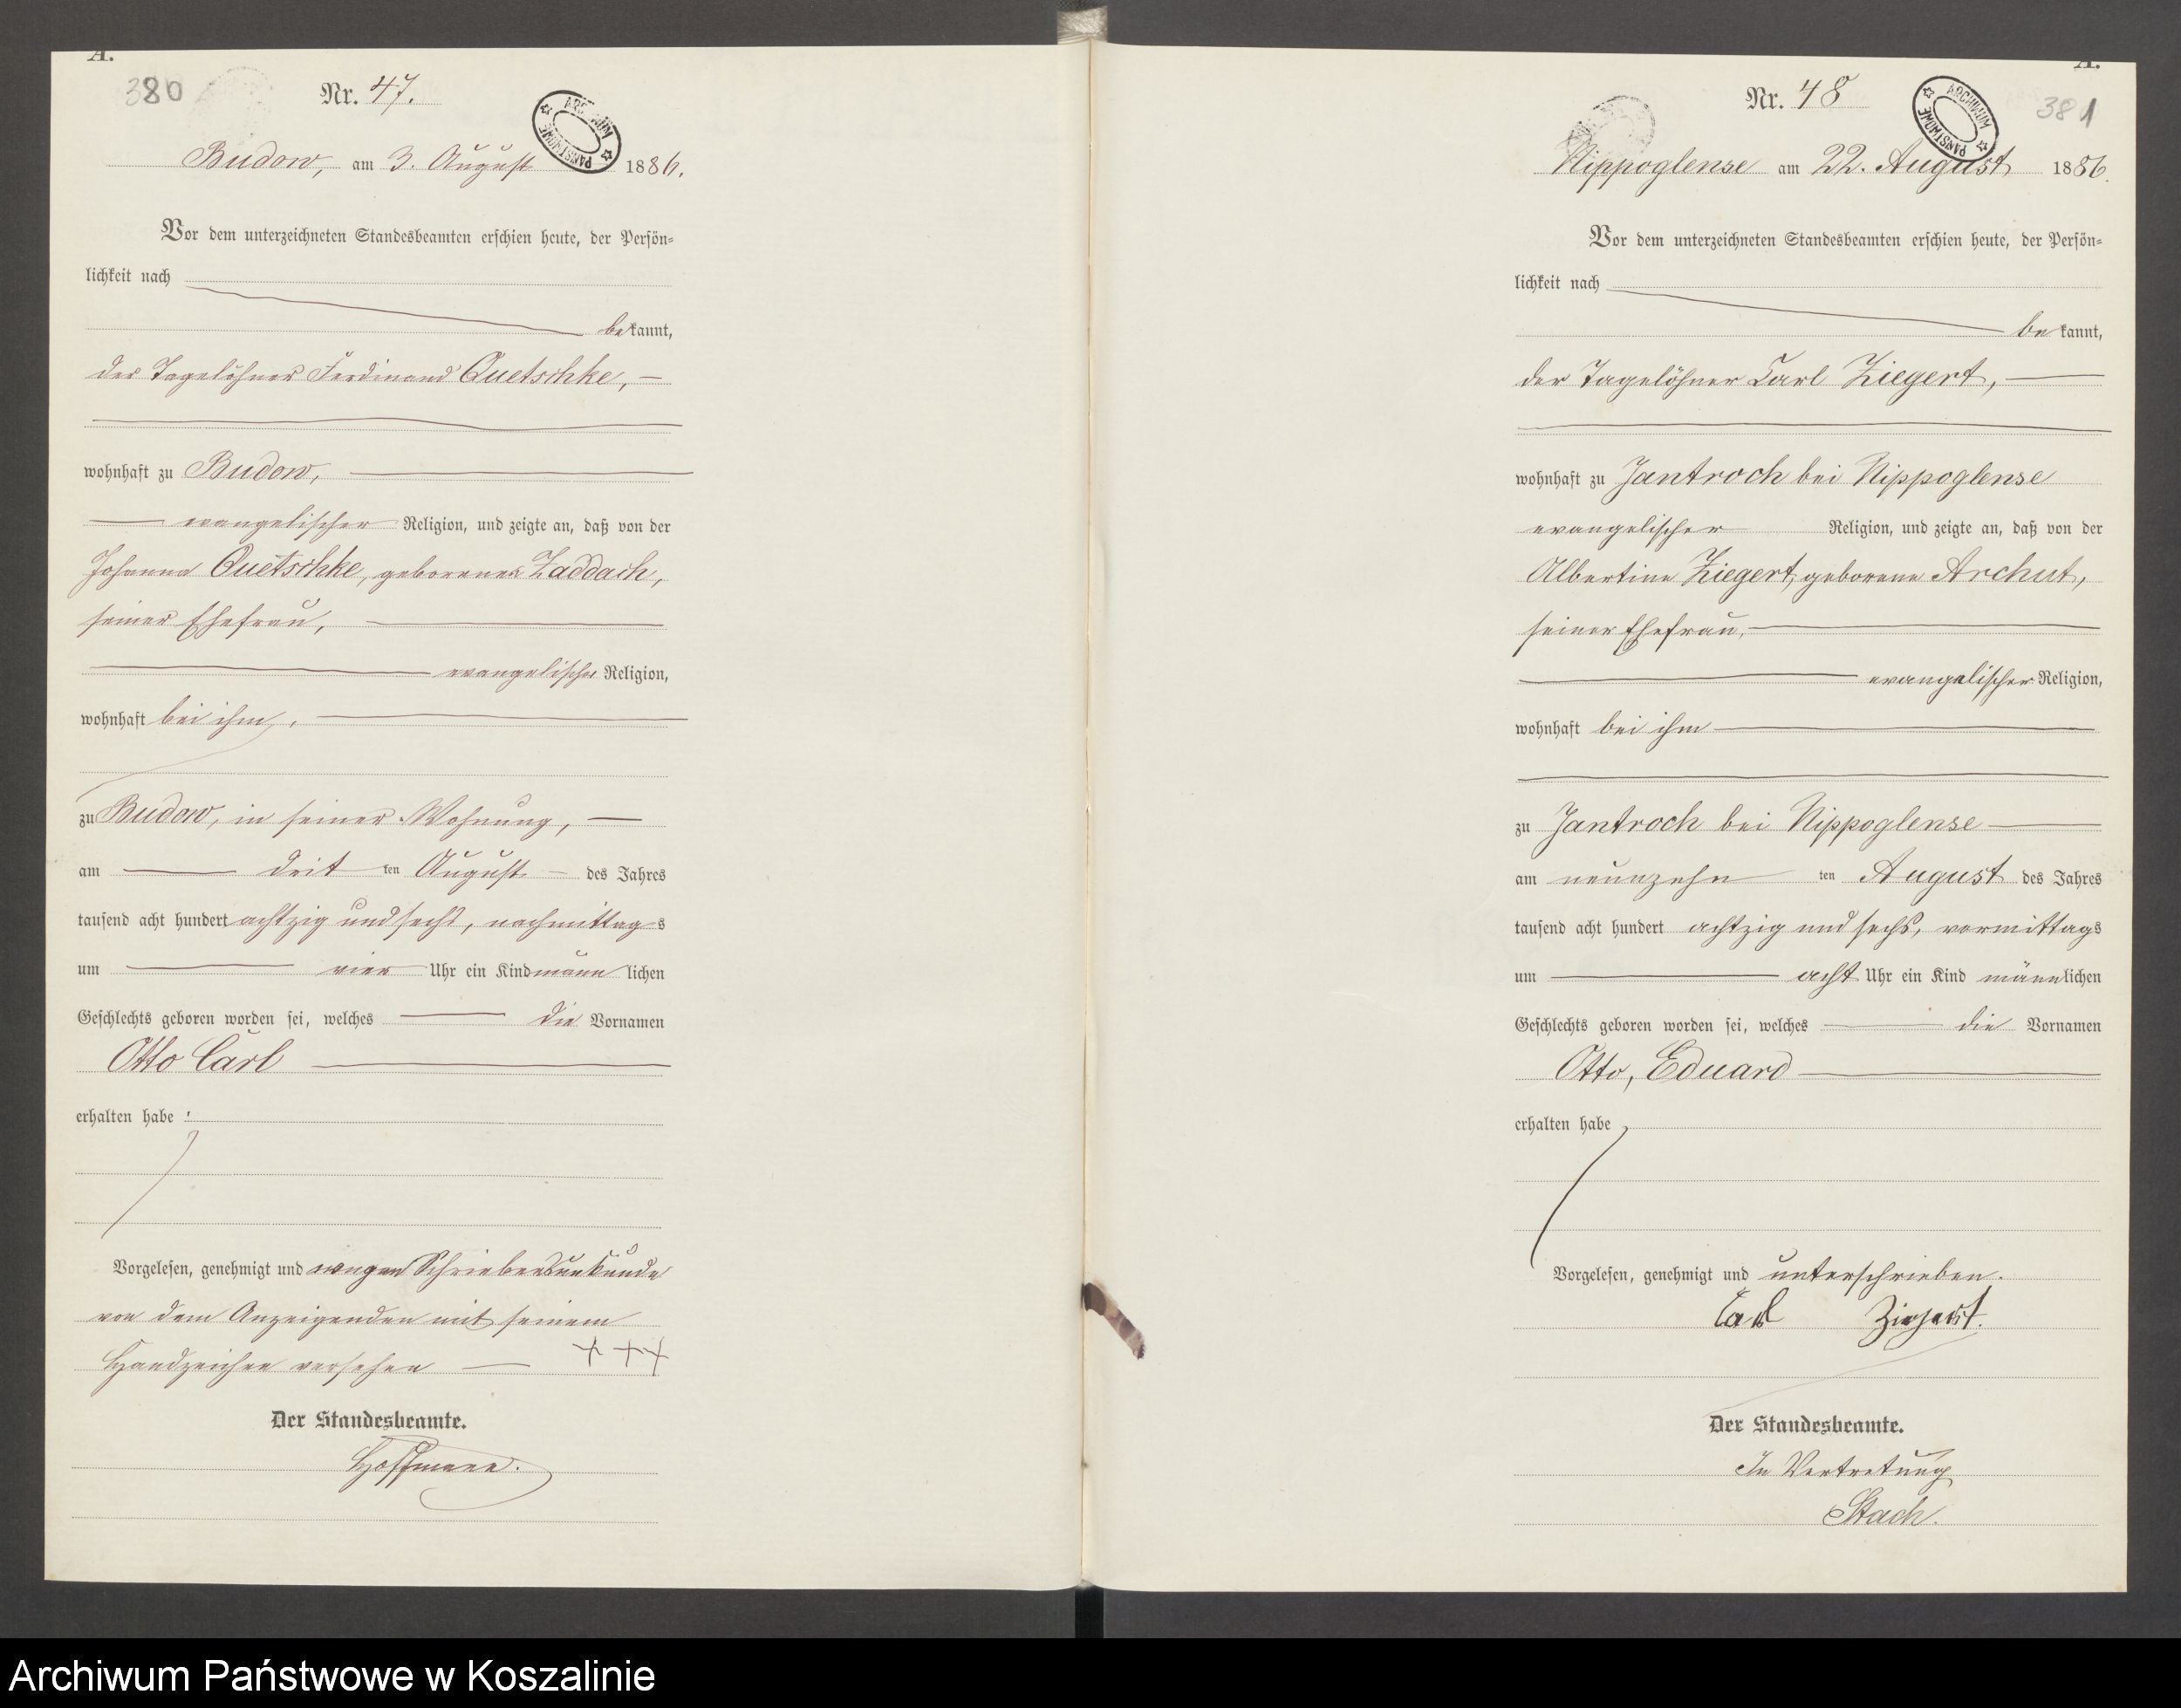 A.
380
Nr. 47.
ARCHIWUM PAŃSTWOWE
Budow, am 3. August 1886.
Vor dem unterzeichneten Standesbeamten erschien heute, der Persön=
lichkeit nach
bekannt,
der Tagelöhner Ferdinand Quetschke,
wohnhaft zu Budow,
evangelischer Religion, und zeigte an, daß von der
Johanna Quetschke, geborenen Zaddach,
seiner Ehefrau,
evangelischer Religion,
wohnhaft bei ihm,
zu Budow, in seiner Wohnung,
am dritten August des Jahres
tausend acht hundert achtzig und sechs, nachmittags
um vier Uhr ein Kind männlichen
Geschlechts geboren worden sei, welches die Vornamen
Otto Carl
erhalten habe.
Vorgelesen, genehmigt und wegen Schreibensunkunde
von dem Anzeigenden mit seinem
Handzeichen versehen +++
Der Standesbeamte.
Hoffmann.
A.
381
Nr. 48
ARCHIWUM PAŃSTWOWE
Nippoglense am 22. August 1886.
Vor dem unterzeichneten Standesbeamten erschien heute, der Persön=
lichkeit nach
bekannt,
der Tagelöhner Carl Ziegert,
wohnhaft zu Jantroch bei Nippoglense
evangelischer Religion, und zeigte an, daß von der
Albertine Ziegert, geborene Archut,
seiner Ehefrau,
evangelischer Religion,
wohnhaft bei ihm
zu Jantroch bei Nippoglense
am neunzehnten August des Jahres
tausend acht hundert achtzig und sechs, vormittags
um acht Uhr ein Kind männlichen
Geschlechts geboren worden sei, welches die Vornamen
Otto, Eduard
erhalten habe
Vorgelesen, genehmigt und unterschrieben.
Carl Ziegert.
Der Standesbeamte.
In Vertretung
Stach.
Archiwum Państwowe w Koszalinie